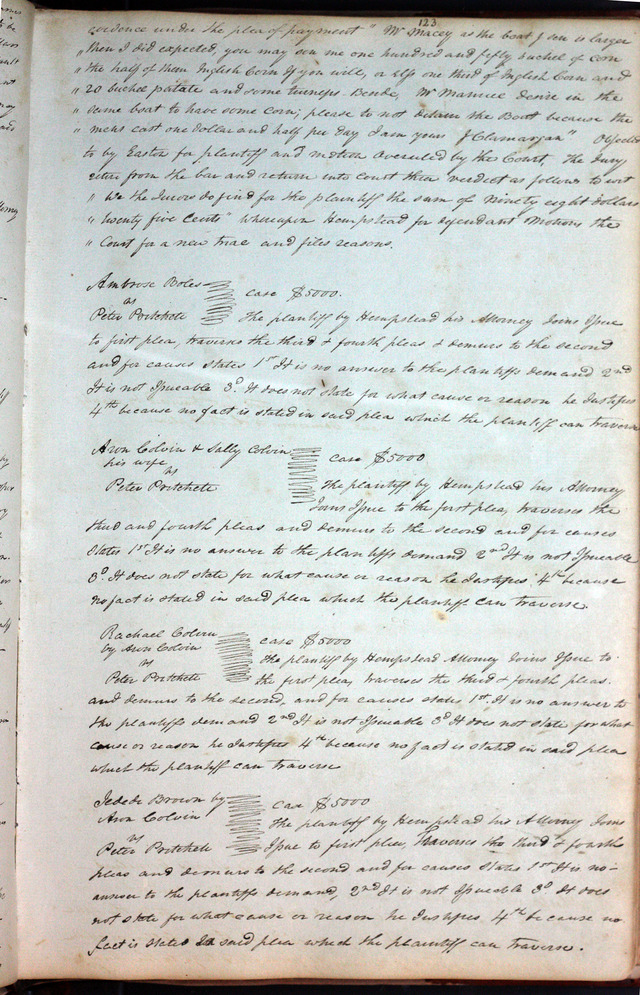 123
evidence under the plea of payment " Mr Macey as the boat I sen is larger
" then I did expected, you may sen me one hundred and fifty buchel of corn
" the half of them Inglish Corn If you will, or alss one third of Inglish Corn and
" 20 buchel patate and some turneps. Beside, Mr Manuel desire in the
" same boat to have some corn; please to not detain the Boat because the
" mens cast one dollar and half per Day I am yours J Glamorgan" Objected
to by Easton for plantiff and motion overuled by the Court, the Jury
retire from the bar and return into Court their verdict as follows to wit
" We the Jurors do find for the plantiff the sum of Ninety eight dollars
" twenty five Cents" whereupon Hempstead for defendant Motions the
" Court for a new trial and files reasons.
Ambrose Boles
vs
case $5000.
Peter Pritchete
the plantiff by Hempstead his Attorney Joins Issue
to first plea, traverses the third & fourth pleas & demurs to the second
and for causes states 1st It is no answer to the plantiffs demand 2nd
It is not Issueable 3d. It does not state for what cause or reason he Justifies
4th because no fact is stated in said plea which the plantiff can traverse
Aron Colvin & Sally Colvin
his wife
case $5000
vs
Peter Pritchete
the plantiff by Hempstead his Attorney
Joins Issue to the first plea, traverses the
third and fourth pleas and demurs to the second and for causes
states 1st It is no answer to the plantiffs demand 2nd It is not Issueable
3d. It does not state for what cause or reason he Justifies 4th because
no fact is stated in said plea which the plantiff can traverse.
Rachael Colvin
by Aron Colvin
case $5000
vs
the plantiff by Hempstead Attorney Joins Issue to
Peter Pritchete
the first plea, traverses the third & fourth pleas
and demurs to the second, and for causes states 1st. It is no answer to
the plantiffs demand 2nd It is not Issueable 3d It does not state for what
cause or reason he Justifies 4th because no fact is stated in said plea
which the plantiff can traverse
Jebede Brown by
Aron Colvin
case $5000
vs
the plantiff by Hempstead his Attorney Joins
Peter Pritchete
Issue to first plea, Traverses the third & fourth
pleas and demurs to the second and for causes states 1st It is no
answer to the plantiffs demand, 2nd It is not Issueable 3d It does
not state for what cause or reason he Justifies. 4th because no
fact is stated In said plea which the plantiff can traverse.